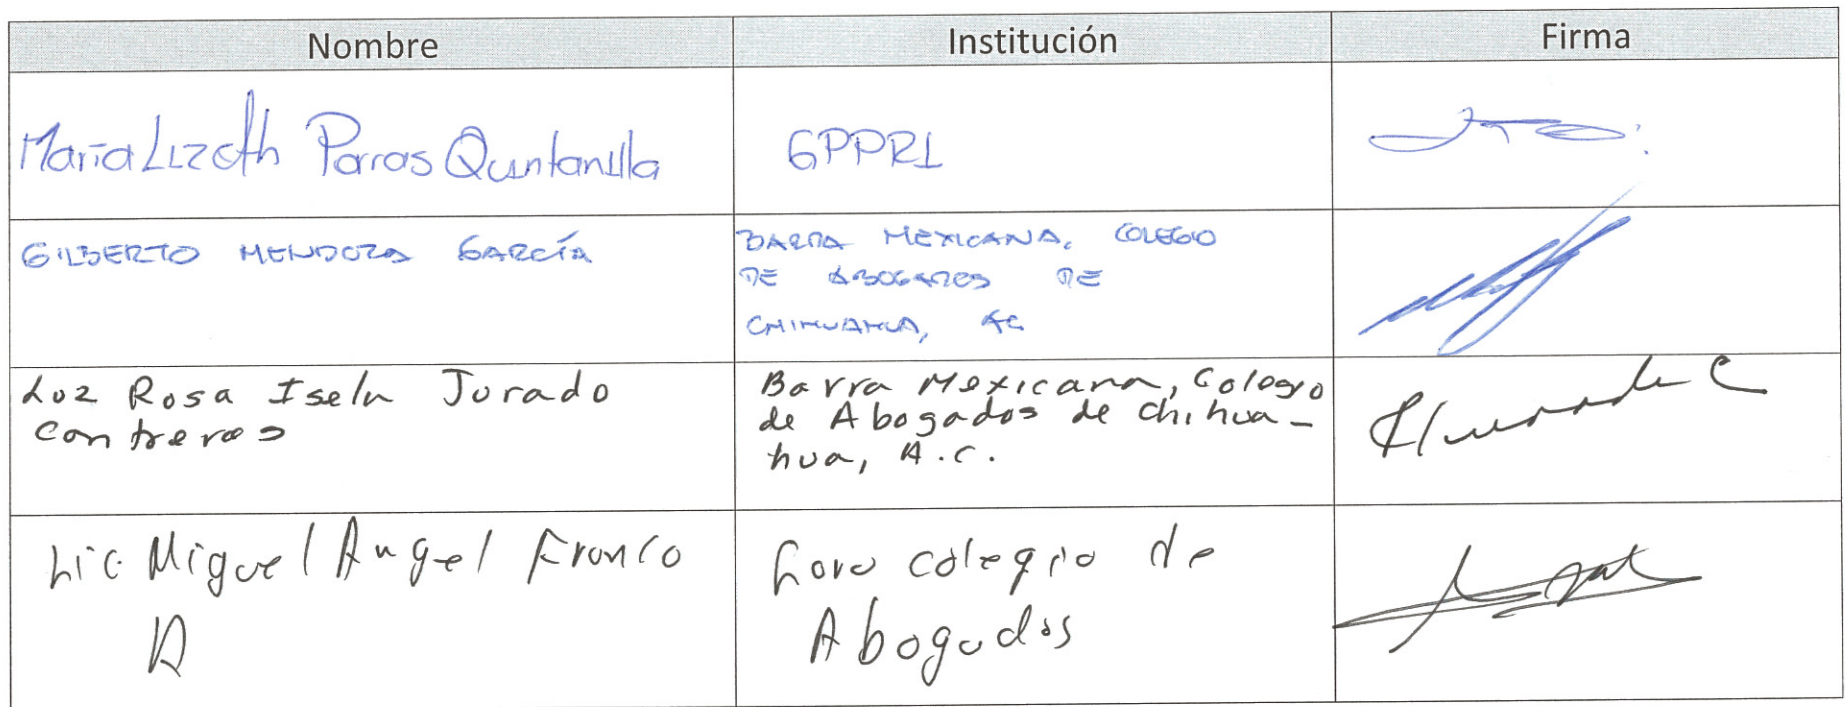 Nombre Institución Firma
María Lizeth Parras Quintanilla GPPRI
GILBERTO MENDOZA GARCÍA
BARRA MEXICANA, COLEGIO
DE ABOGADOS DE
CHIHUAHUA, AC
Luz Rosa Isela Jurado
Contreras
Barra Mexicana, Colegio
de Abogados de Chihua-
hua, A.C.
Lic Miguel Angel Franco
A
Foro colegio de
Abogados